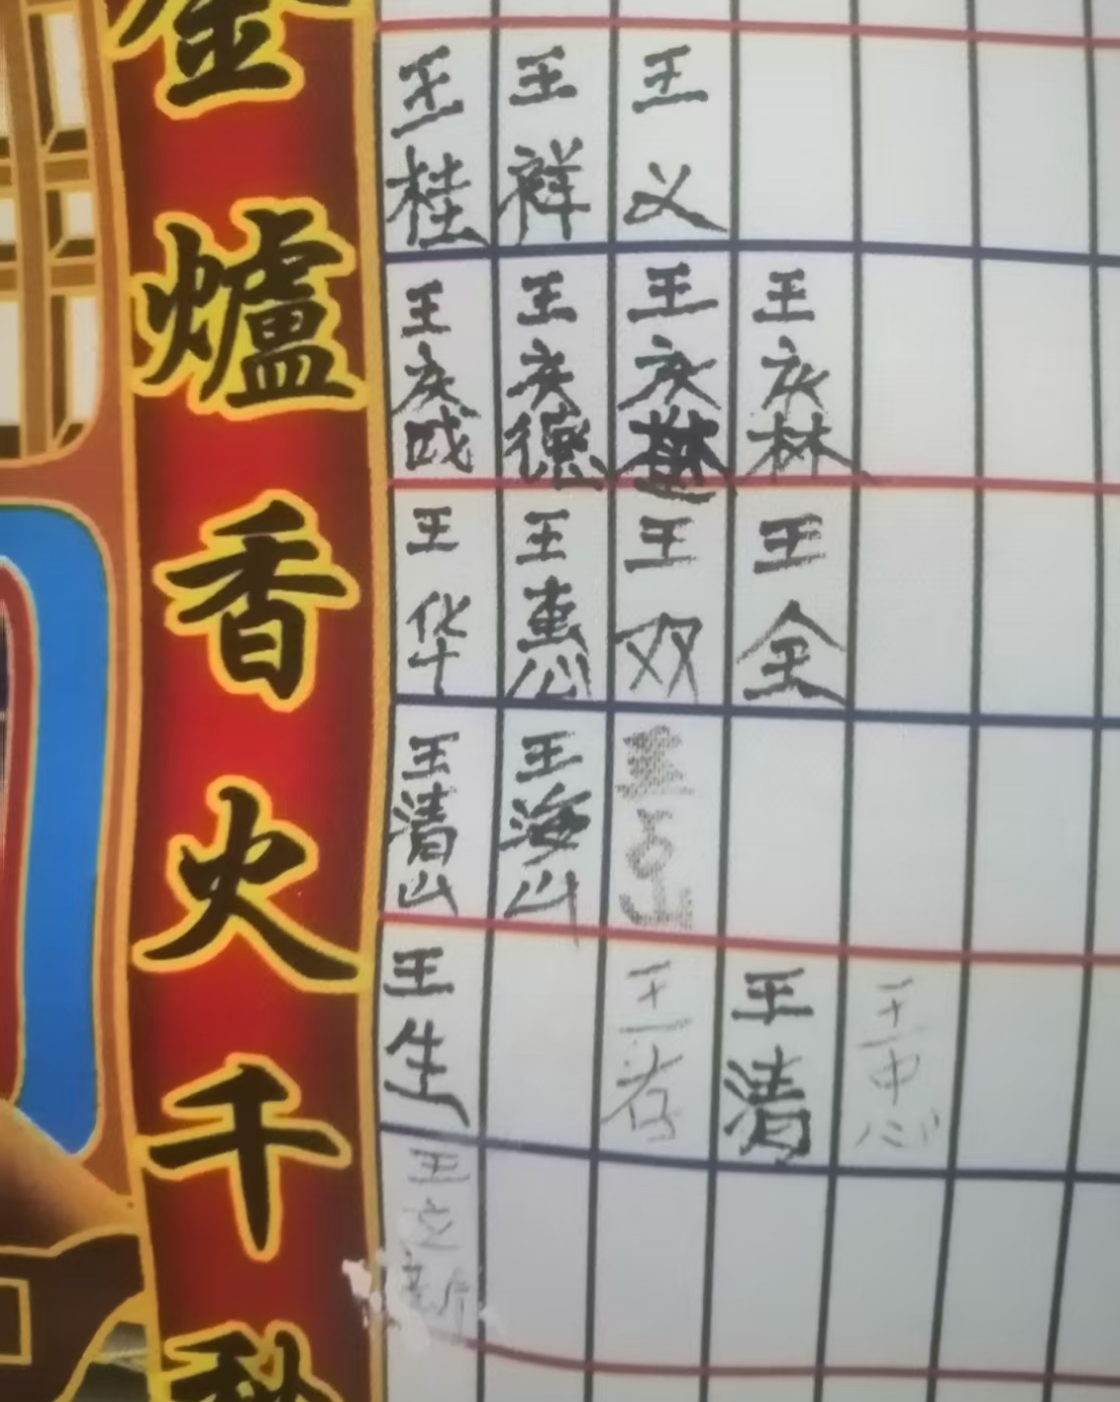 金爐香火千秋
王桂
王祥
王义
王庆成
王庆德
王庆樾
王庆林
王华
王惠
王双
王全
王清山
王海山
王生
王若
王清
王中心
王立新